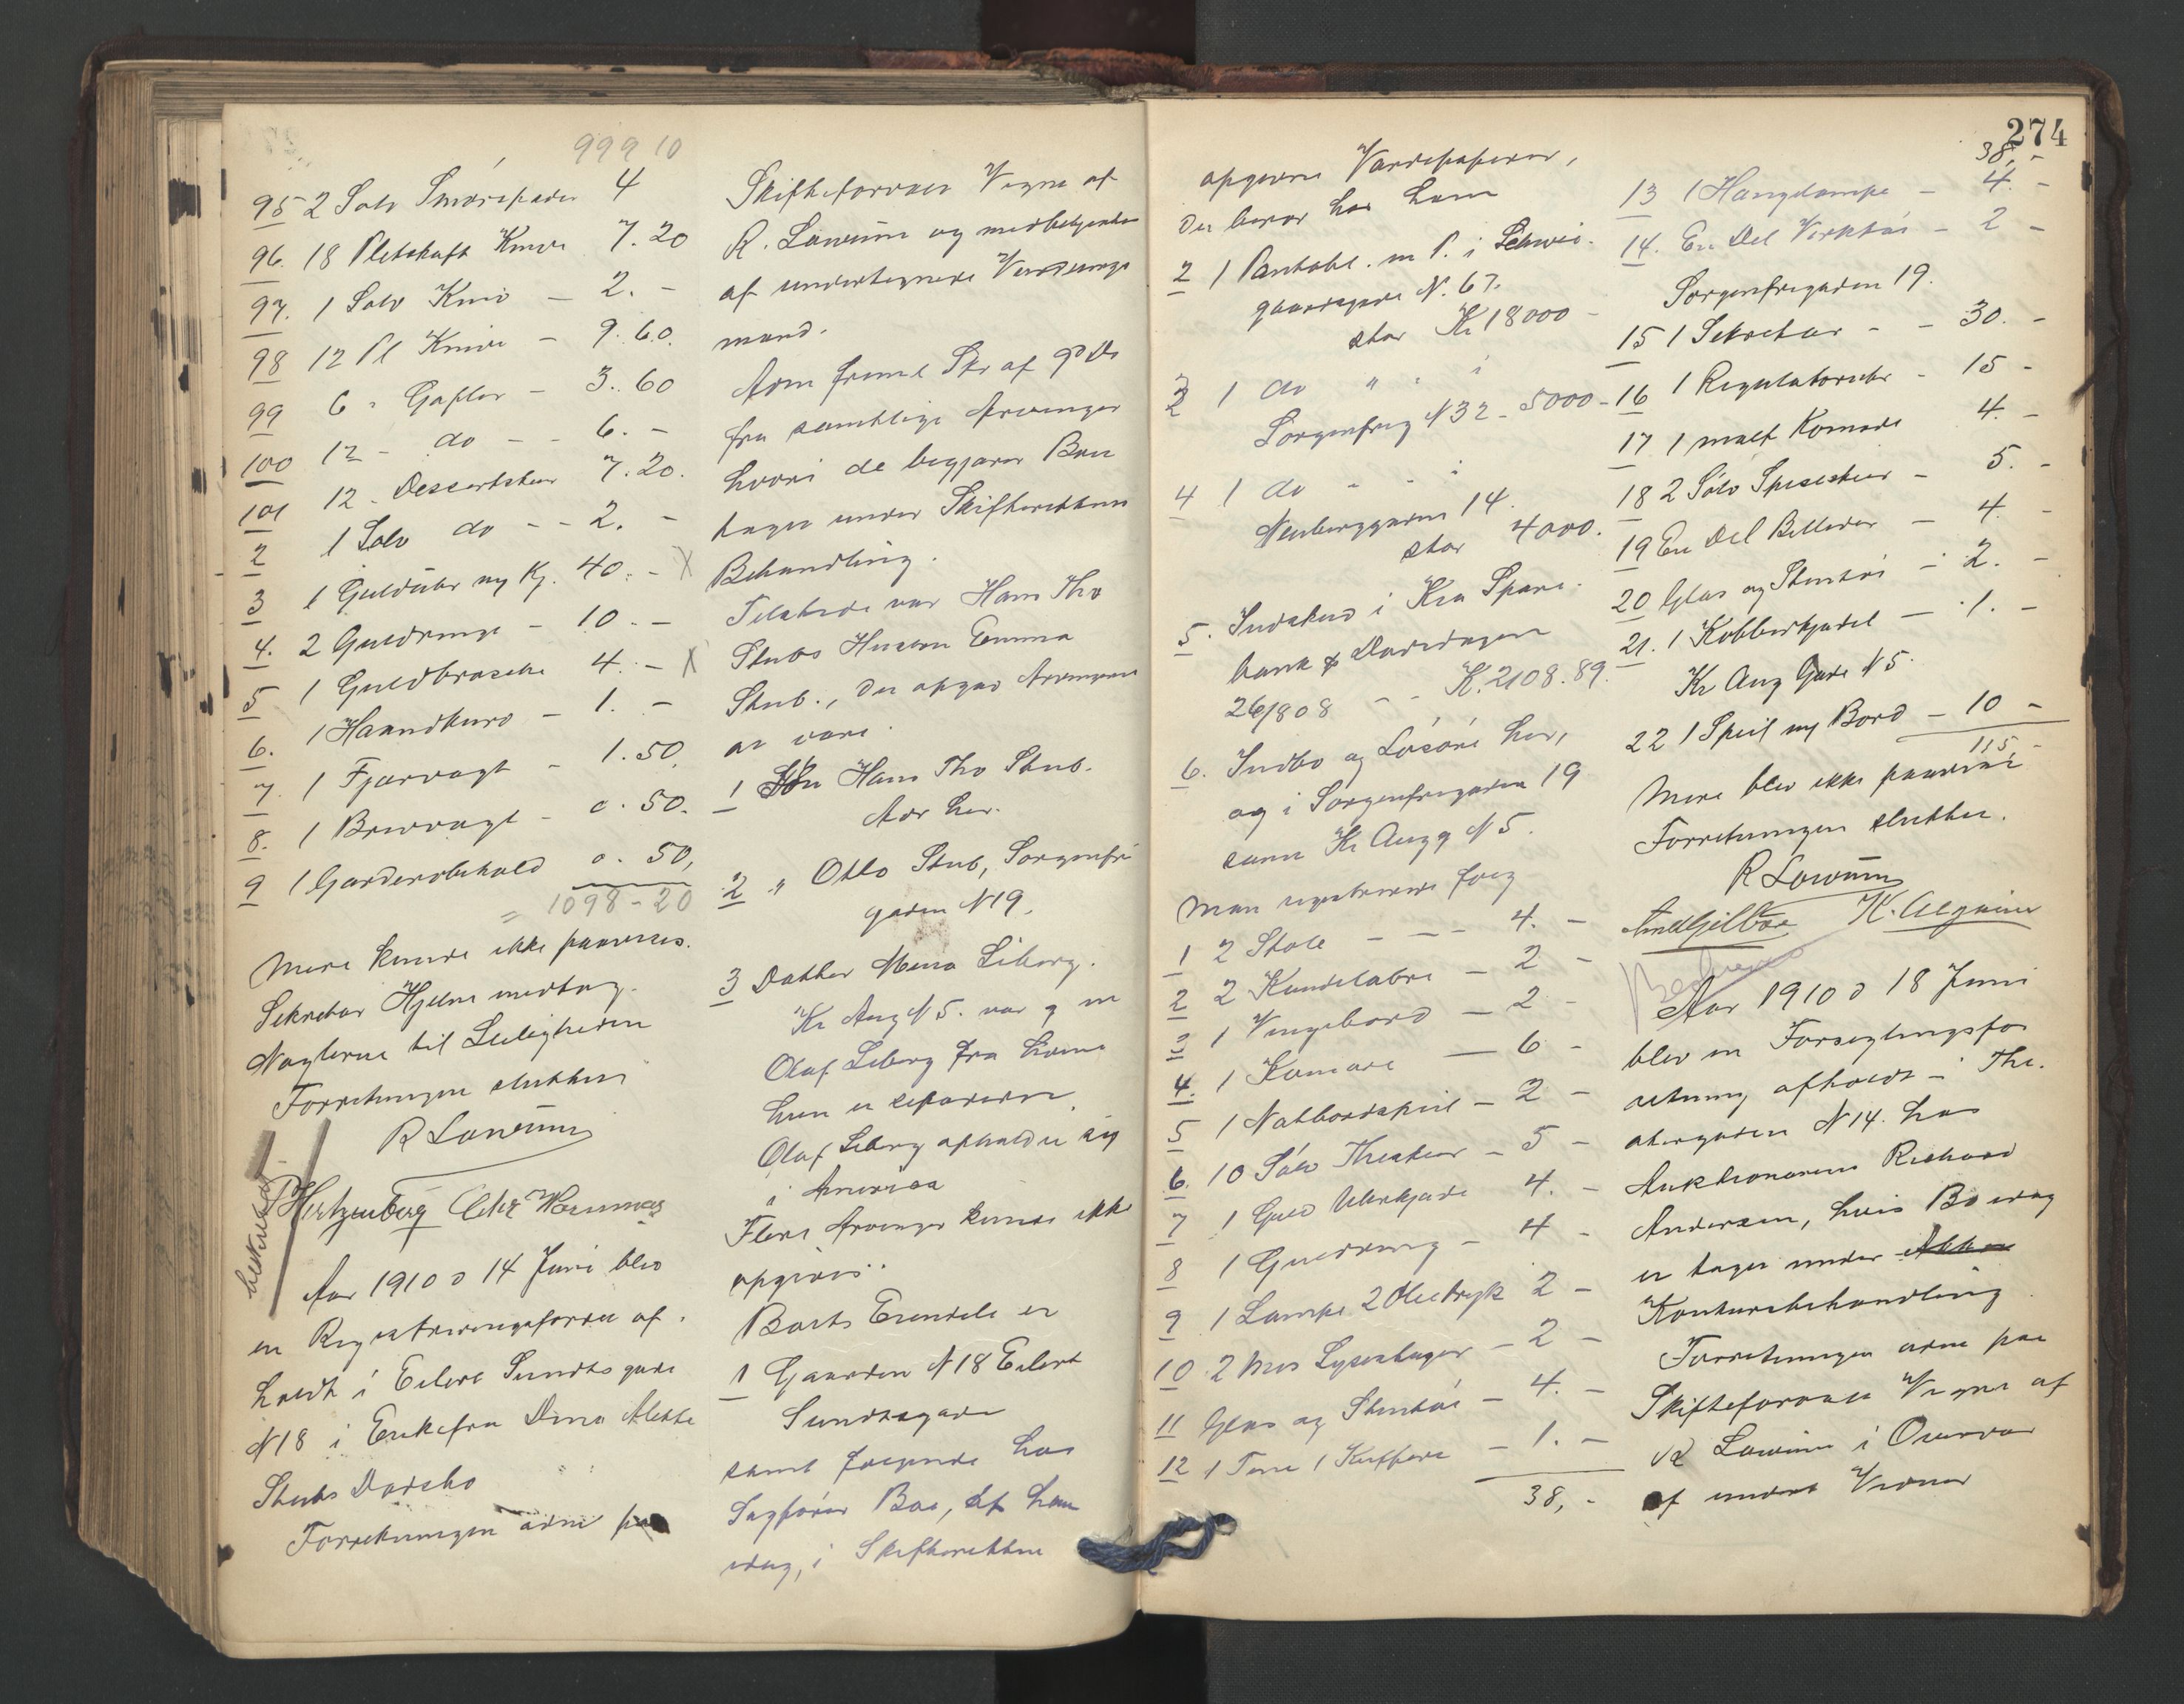 999 10
95 2 Sølv Smørspader 4
96. 18 Pletskaft Knive 7.20
97. 1 Sølv Kniv – 2. –
98 12 Pl Knive – 9.60.
99 6 " Gafler – 3.60
100 12 – do – – 6. –
101 12 – Dessertskeer 7.20.
2 1 Sølv do – – 2. –
3 1 Gulduhr og Kj. 40. – X
4. 2 Guldringe – 10. –
5 1 Guldbrosche 4. – X
6. 1 Haandkurv – 1. –
7. 1 Fjærvægt – 1.50.
8. 1 Brevvægt – 0.50.
9 1 Garderobehold 0.50,
= 1098-20
Mere kunde ikke paavises.
Sekretær Hjelm modtog
Nøglerne til Leiligheden
Forretningen sluttet
R Løwüm
Hertzenberg Chr
beskrevet
Aar 1910 d 14 Juni blev
en Registreringsforret af-
holdt i Eilert Sundts gade
N 18 i Enkefru Dina Alette
Stubs Dødsbo
Forretningen adm paa
Skifteforvalt Vegne af
R. Løwüm og medbetjentes
af undertegnede Vurderings
mænd.
Adm freml Skr af gd Ds
fra samtlige Arvinger
hvori de begjærer Boet
taget under Skifterettens
Behandling.
Tilstede var Hans Tho
Stubs Hustru Emma
Stub., der opgav Arvingerne
at være
1 Søn Hans Tho Stub.
Adr her.
2 " Otto Stub, Sorgenfri
gaden N 19.
3 Datter Mena Siberg.
Kr Aug N 5. var g m
Olaf Siberg fra hvem
hun er separeret.
Olaf Siberg opholder sig
i Amerika
Flere Arvinger kunde ikke
opgives.
Boets Eiendele er
1 Gaarden N 18 Eilert
Sundtsgade
samt følgende hos
Sagfører Boe, at han
idag, i Skifteretten
274
opgivne Værdipapirer,
der beror hos ham
2 1 Pantobl. m P. i Schwei-
gaardsgade N. 67.
stor Kr 18000 –
3 1 do " " "
Sorgenfrig N 32 – 5000 –
4 1 do – –
Neuberggaden 14.
stor 4000.
5. Indskud i Kra Spare-
bank p Dødsdagen
26/8 08 – – K. 2108.89.
6. Indbo og Løsøre her,
og i Sorgenfrigaden 19
samt Kr Aug g N 5.
Man registrerede følg
1 2 Stole – – – 4. –
2 2 Kandelabre – 2 –
3 1 Vingebord – 2 –
4. 1 Komode – 6 –
5 1 Natbordspeil – 2 –
6. 10 Sølv Theskeer – 5 –
7 1 Guld Uhrkjæde 4. –
8 1 Guldring – 4 –
9 1 Lampe 2 Olietryk 2 –
10 2 Mes Lysestager – 2 –
11 Glas og Stentøi – 4. –
12 1 Tine 1 Kuffert – 1. –
38, –
38, –
13 1 Hængelampe – 4. –
14. En Del Verktøi – 2 –
Sorgenfrigaden 19.
15 1 Sekretær – – 30. –
16 1 Regulatoruhr – 15 –
17 1 malt Komode 4. –
18 2 Sølv Spiseskeer – 5. –
19 En Del Billeder – 4 –
20 Glas og Stentøi – 2. –
21. 1 Kobberkjedel – 1. –
Kr Aug Gade N 5.
22 1 Speil og Bord – 10 –
115, –
Mere blev ikke paavist
Forretningen sluttet.
R Løwüm
Beskrevet
Aar 1910 d 18 Juni
blev en Forseglingsfor
retning afholdt i The-
atergaden N 14. hos
Auktionarius Richard
Andersen, hvis Bo idag
er taget under
Konkursbehandling
Forretningen adm paa
Skifteforvalt Vegne af
R Løwüm i Overvær
af undert Vidner